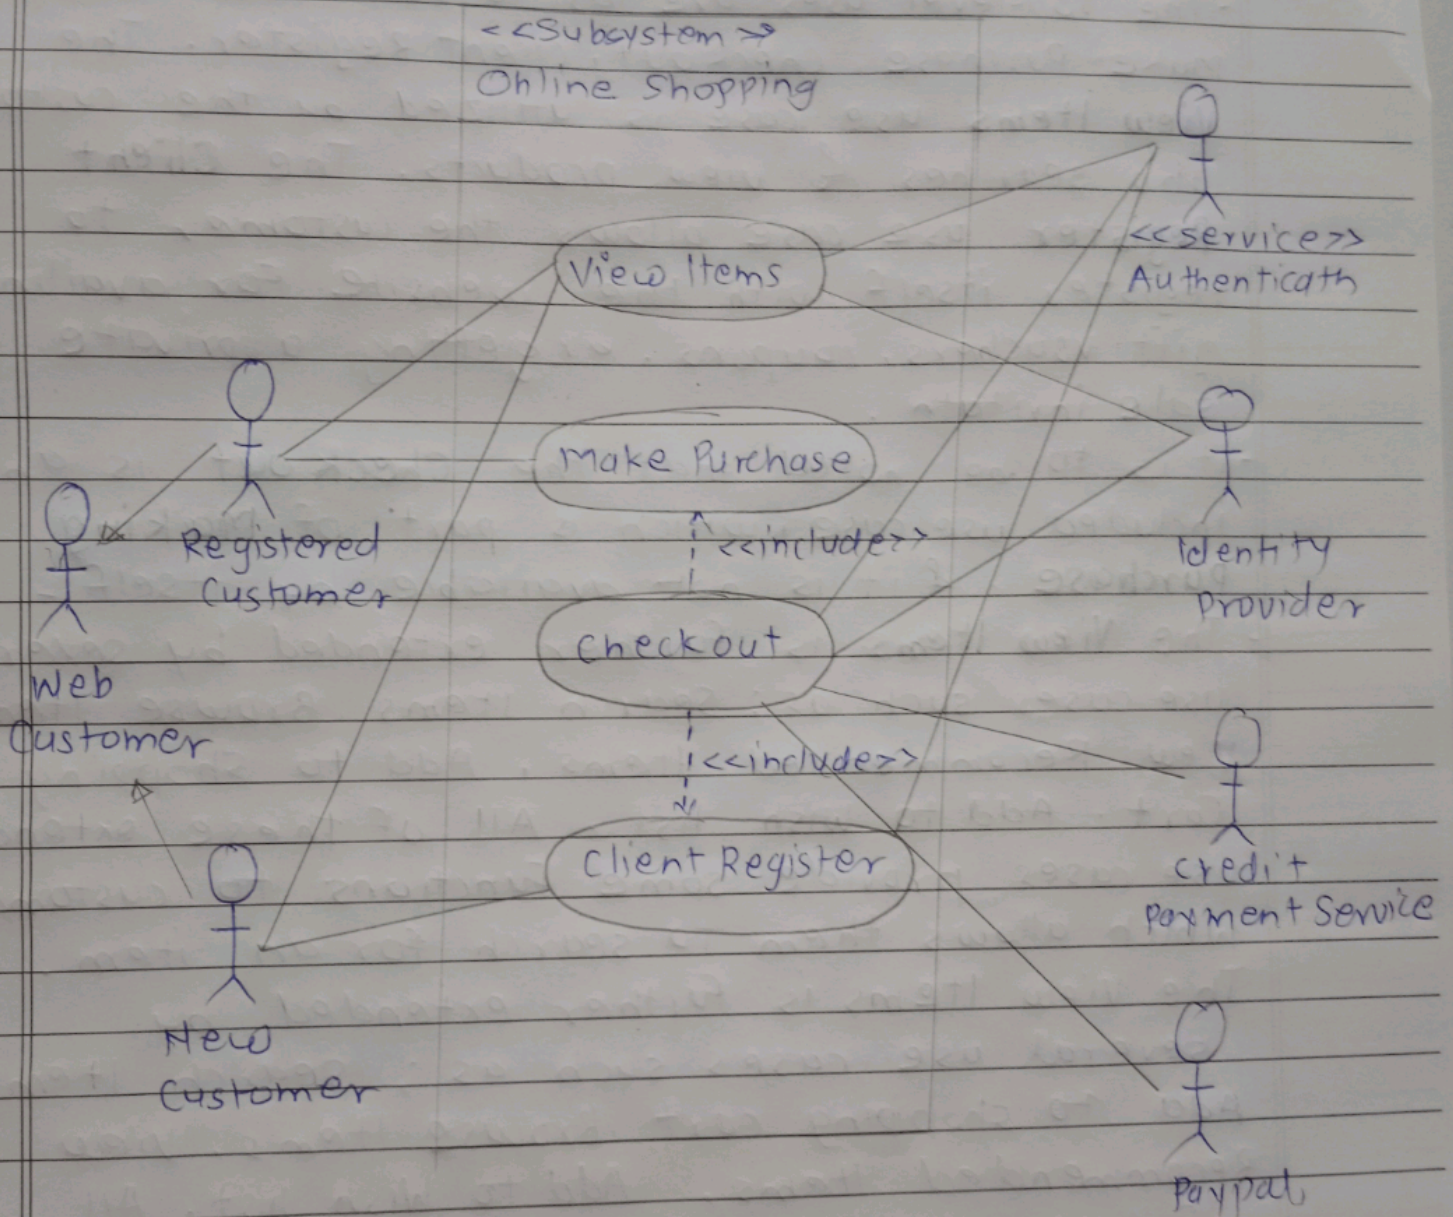 <<Subsystem>>
Online Shopping
View Items
<<service>>
Authenticath
Make Purchase
Registered
Customer
<<include>>
Identity
Provider
Checkout
Web
Customer
<<include>>
Client Register
Credit
Payment Service
New
Customer
Paypal